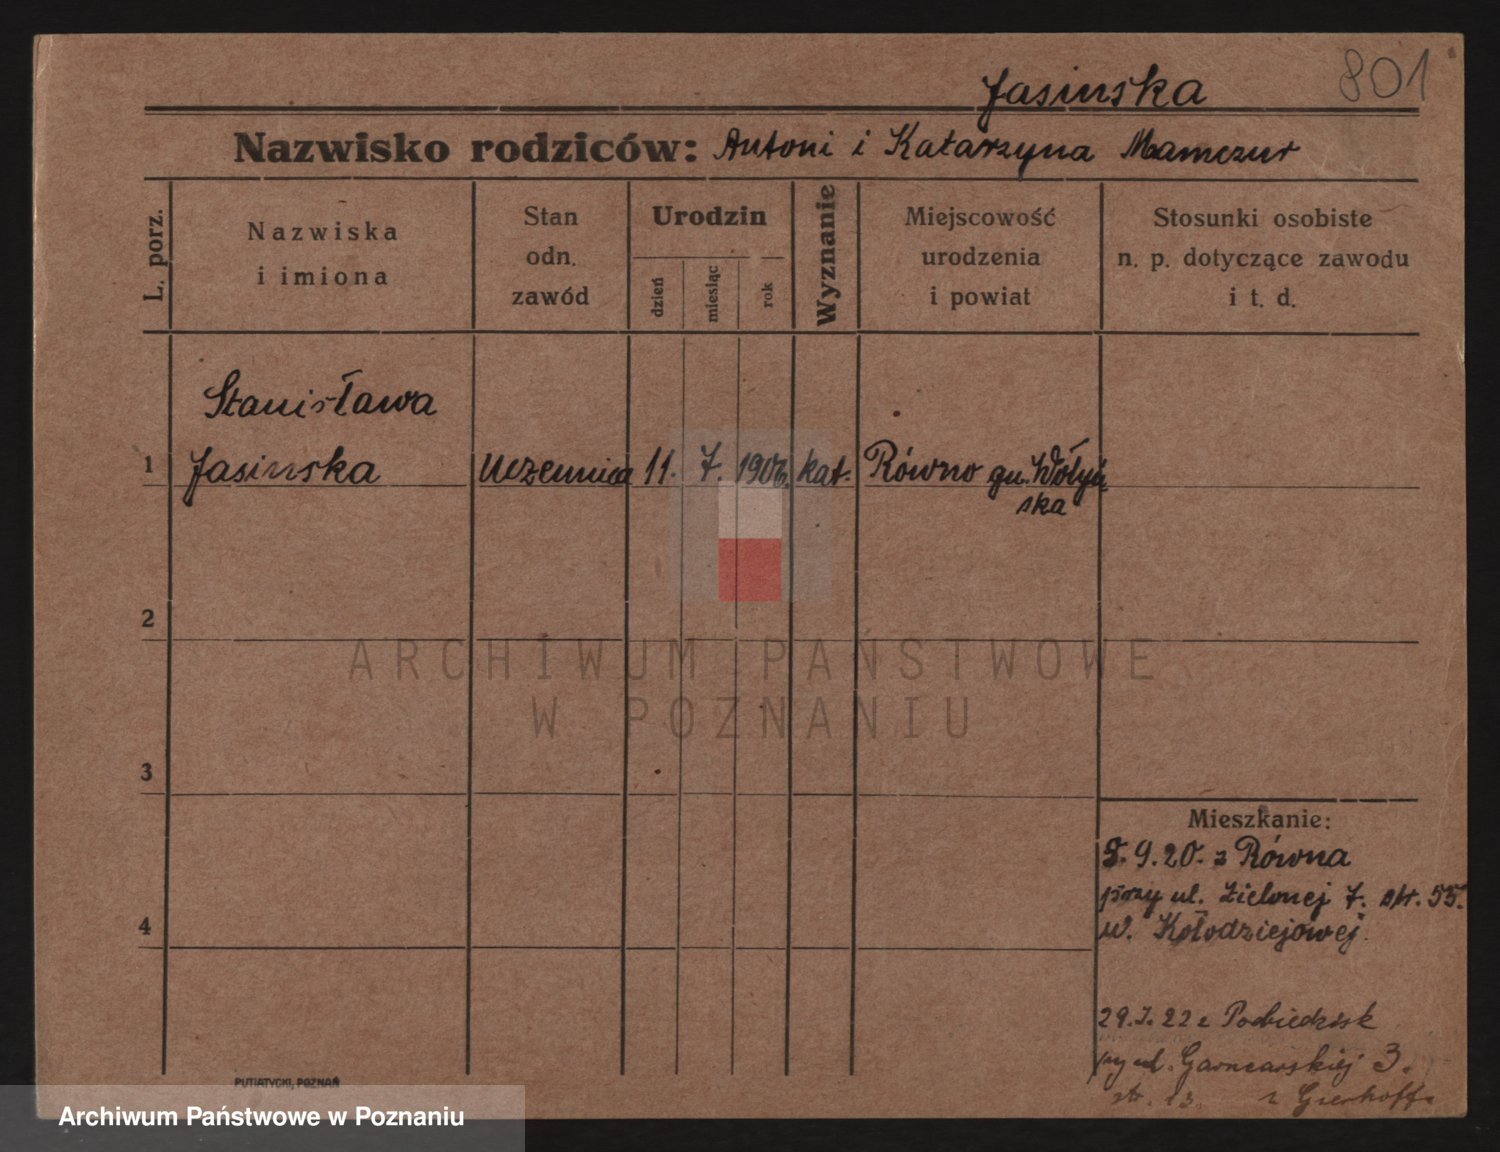 801
Jasinska
Nazwisko rodziców: Antoni i Katarzyna Mamczur
L. porz.
Nazwiska
i imiona
Stan
odn.
zawód
Urodzin
dzień
miesiąc
rok
Wyznanie
Miejscowość
urodzenia
i powiat
Stosunki osobiste
n. p. dotyczące zawodu
i t. d.
Stanisława
1 Jasinska uczennica 11. 7. kat. Równo gu. Wołyń
ska
2
ARCHIWUM PAŃSTWOWE
W POZNANIU
3
Mieszkanie:
9.20. z Równa
przy ul. Zielonej 7. str. 55.
4 u. Kołodziejowej.
22 z Pobiedzisk
ul. Garncarskiej 3.
str. 13.
PUTIATYCKI, POZNAŃ
Archiwum Państwowe w Poznaniu